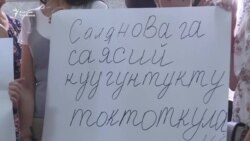 Салянова га
саясий
куугунтукту
токтоткула